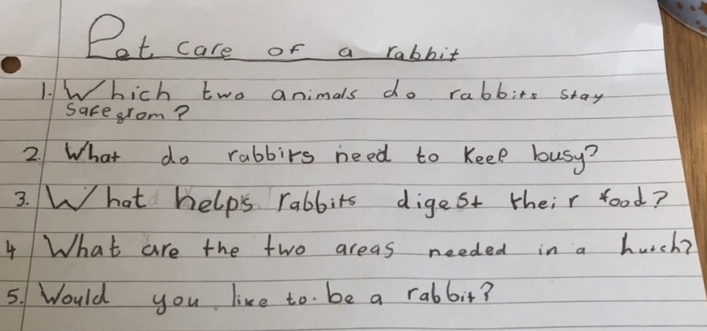 Pet care of a rabbit
1. Which two animals do rabbits stay
safe from?
2. What do rabbits need to keep busy?
3. What helps rabbits digest their food?
4 What are the two areas needed in a hutch?
5. Would you like to be a rabbit?